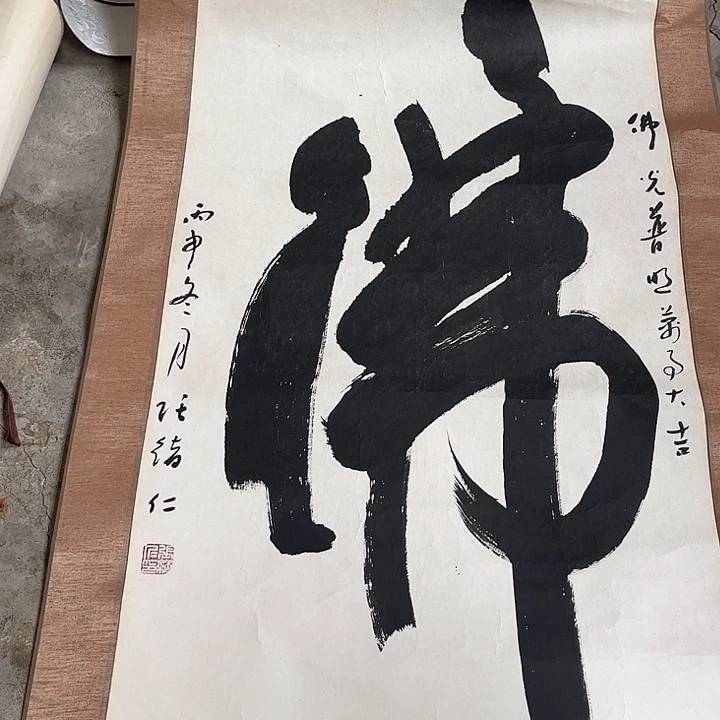 佛光普照萬事大吉
佛
丙申冬月
张緒仁